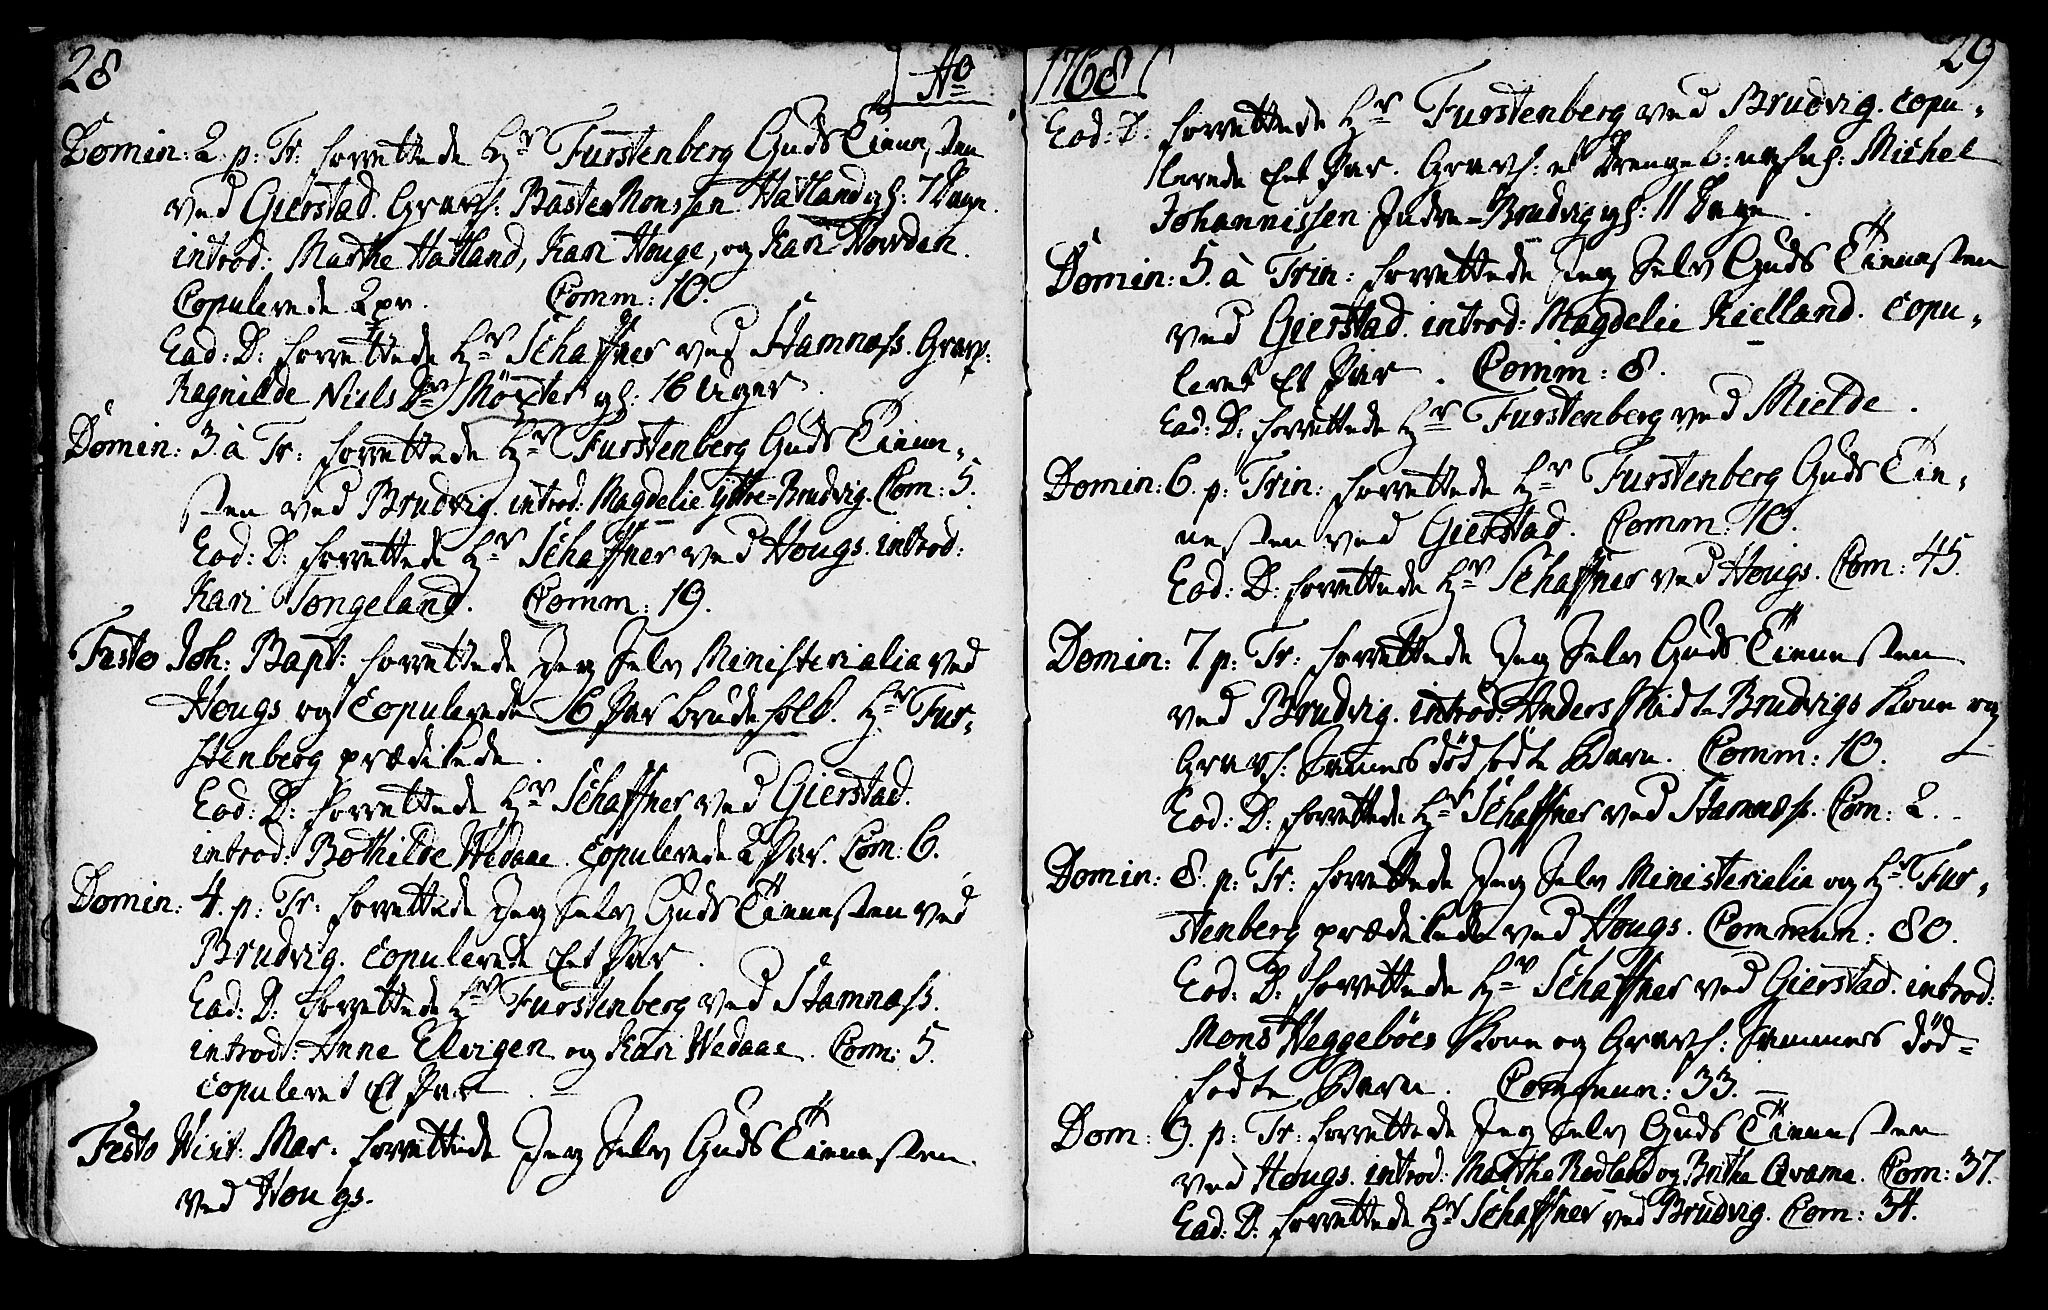 28
Ao
Domin: 2. p: Tr: forrettede Hr Furstenberg Guds Tienesten
ved Gierstad. Graf: Baste Monssen Hatland gl: 7 Dage.
introd: Marthe Hatland, Kari Houge, og Kari Howden.
Copulerede 2 pr. Comm: 10.
Eod: D: forrettede Hr Schaffner ved Stamnæss. Graf:
Ragnilde Niels Dr Möster gl: 16 Uger.
Domin: 3. à Tr: forrettede Hr Furstenberg Guds Tiene,
sten ved Brudvig. introd: Magdelie Ÿttre-Brudvig. Com: 5.
Eod: D: forrettede Hr Schaffner ved Hougs. introd:
Kari Tongeland. Comm: 19.
Festo Joh: Bapt: forrettede Jeg Selv Ministerialia ved
Hougs og Copulerede 16 Par brudefolk. Hr Fur,
stenberg prædikede.
Eod: D: forrettede Hr Schaffner ved Gierstad.
introd: Bothilde Wedaae. Copulerede 2 Par. Com: 6.
Domin: 4. p: Tr: forrettede Jeg Selv Guds Tienesten ved
Brudvig. Copulerede Eet Par.
Eod: D: forrettede Hr Furstenberg ved Stamnæss.
introd: Anne Elvigen og Kari Wedaae. Com: 5.
Copuleret Et Par
Festo Visit: Mar: forrettede Jeg Selv Guds Tienesten
ved Hougs.
1768
29
Eod: D: forrettede Hr Furstenberg ved Brudvig. Copu,
lerede Eet Par. Graf: et Drengeb: Michel
Johannissen Indre-Brudvig gl: 11 Dage.
Domin: 5. à Trin: forrettede Jeg Selv Guds Tienesten
ved Gierstad. introd: Magdelie Kielland. Copu,
leret Et Par. Comm: 8.
Eod: D: forrettede Hr Furstenberg ved Mielde.
Domin: 6. p: Trin: forrettede Hr Furstenberg Guds Tie,
nesten ved Gierstad. Comm: 10.
Eod: D: forrettede Hr Schaffner ved Hougs. Com: 45.
Domin: 7. p: Tr: forrettede Jeg Selv Guds Tienesten
ved Brudvig. introd: Anders Midt-Brudvigs Kone og
Graf: Sammes dødfödte Barn. Comm: 10.
Eod: D: forrettede Hr Schaffner ved Stamnæss. Com: 2.
Domin: 8. p: Tr: forrettede Jeg Selv Ministerialia og Hr Fur,
stenberg prædikede ved Hougs. Commun: 80.
Eod: D: forrettede Hr Schaffner ved Gierstad. introd:
Mons Heggeböes Kone og Graf: Sammes död-
födte Barn. Commun: 33.
Dom: 9. p: Tr: forrettede Jeg Selv Guds Tienesten
ved Hougs. introd: Marthe Rödland og Brithe Qvame. Com: 37.
Eod: D: forrettede Hr Schaffner ved Brudvig. Com: 34.